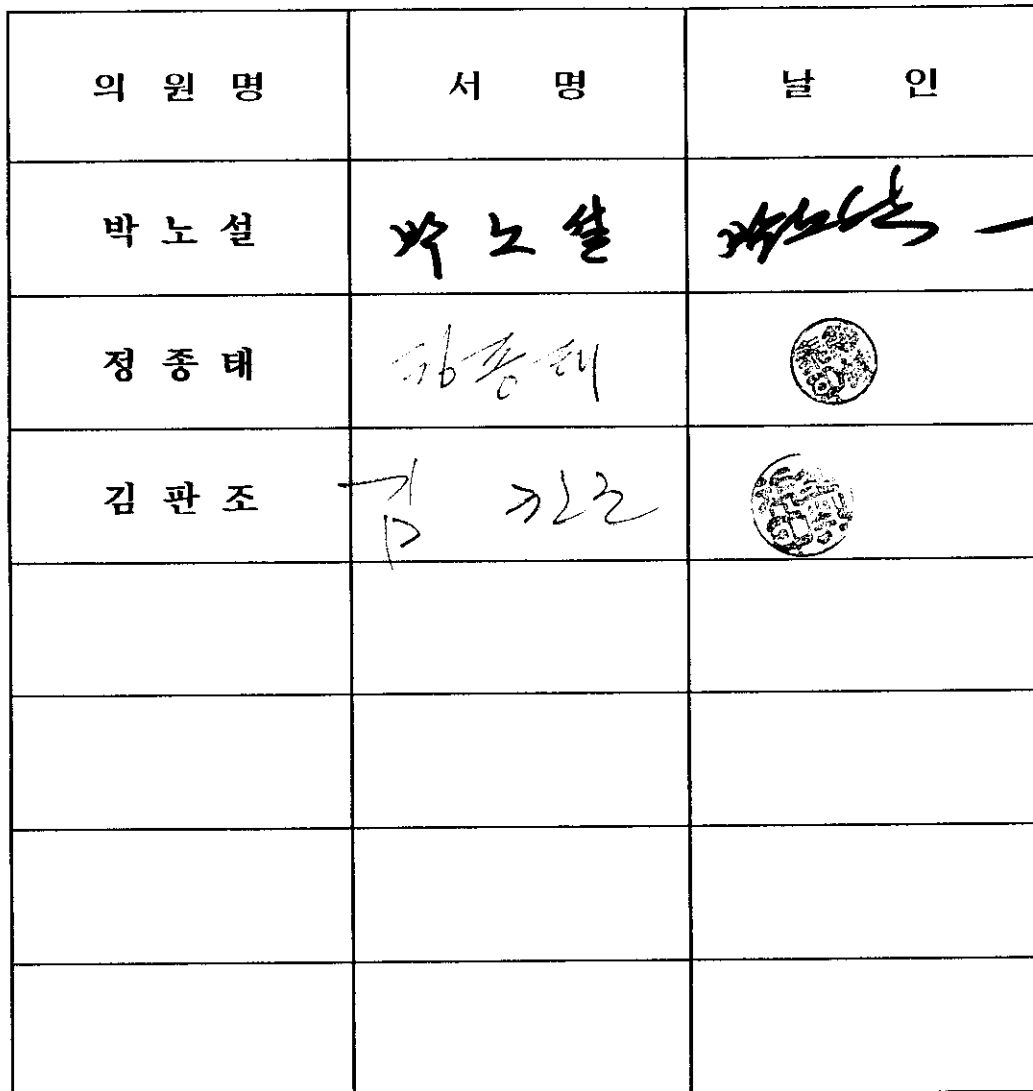 의 원 명 서 명 날 인
박 노 설 박 노 설
정 종 태 정종태
김 판 조 김 판조